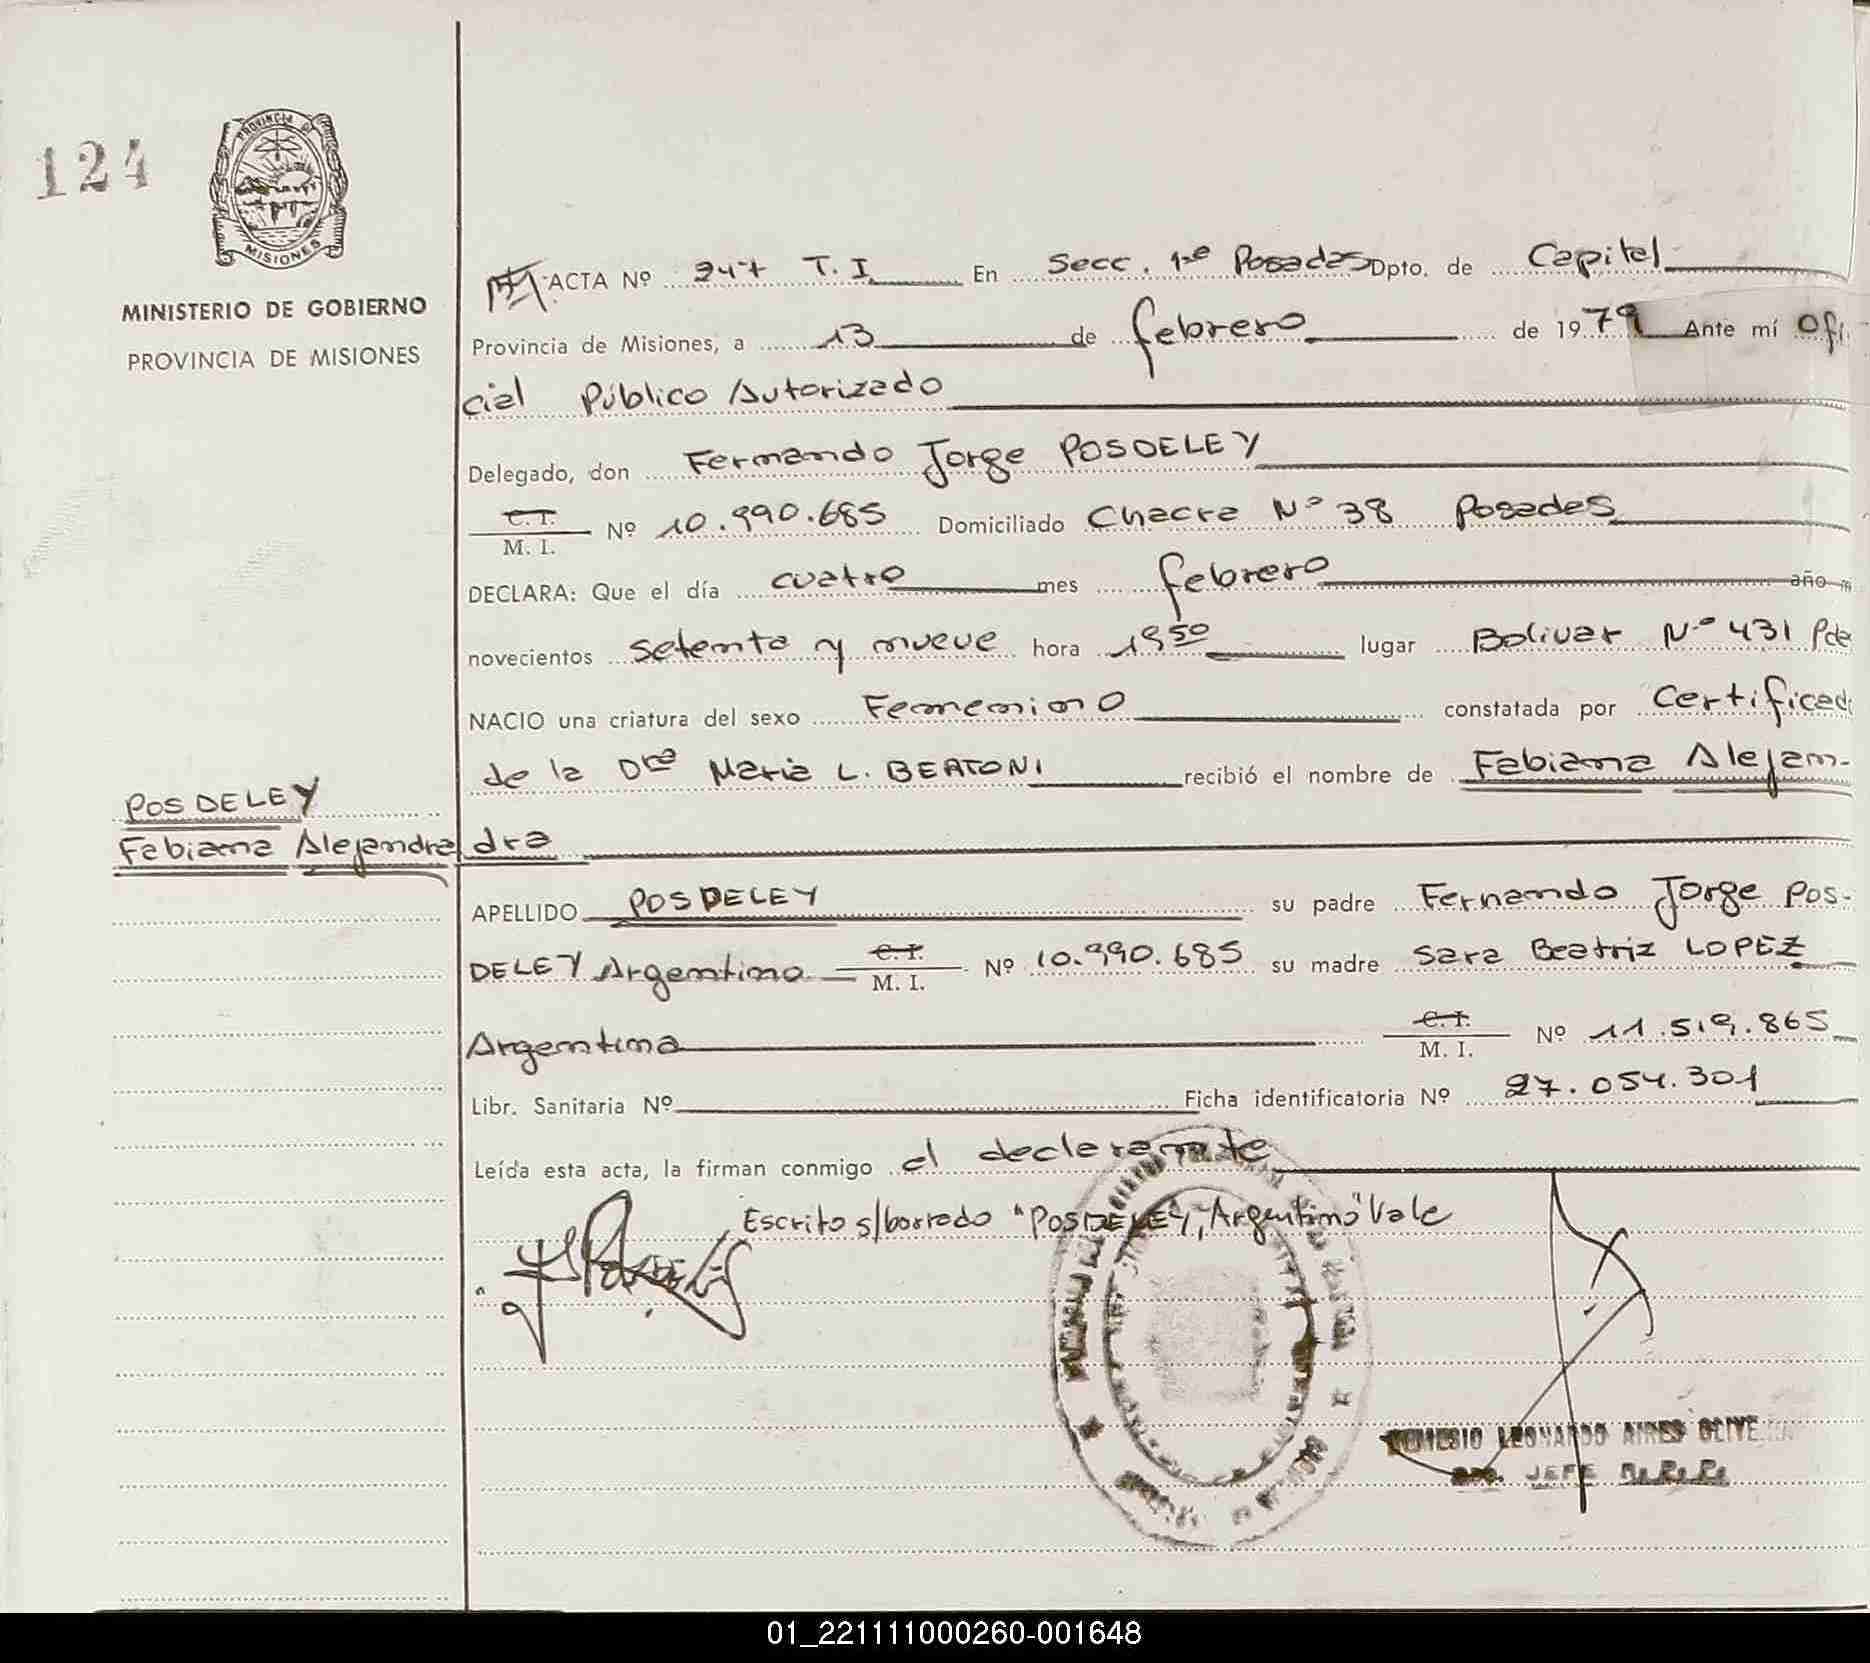 124
PROVINCIA DE
MISIONES
MINISTERIO DE GOBIERNO
PROVINCIA DE MISIONES
ACTA Nº 247 T. I En Secc. 1ra Posadas Dpto. de Capital
Provincia de Misiones, a 13 de febrero de 1979 Ante mí Ofi
cial Público Autorizado
Delegado, don Fernando Jorge POSDELEY
C. I.
M. I. Nº 10.990.685 Domiciliado Chacra Nº 38 Posadas
DECLARA: Que el día cuatro mes febrero año
novecientos setenta y nueve hora 1950 lugar Bolivar Nº 431 Pda
NACIO una criatura del sexo Femenino constatada por Certificad
de la Dra Maria L. BEATONI recibió el nombre de Fabiana Alejan-
dra
POSDELEY
Fabiana Alejandra
APELLIDO POSDELEY su padre Fernando Jorge POS-
DELEY Argentino C. I. M. I. Nº 10.990.685 su madre Sara Beatriz LOPEZ
Argentina C. I. M. I. Nº 11.519.865
Libr. Sanitaria Nº Ficha identificatoria Nº 27.054.301
Leída esta acta, la firman conmigo el declarante
Escrito s/borrado "POSDELEY, Argentino" Vale
LEONARDO AIRES OLIVE
JEFE
01_221111000260-001648